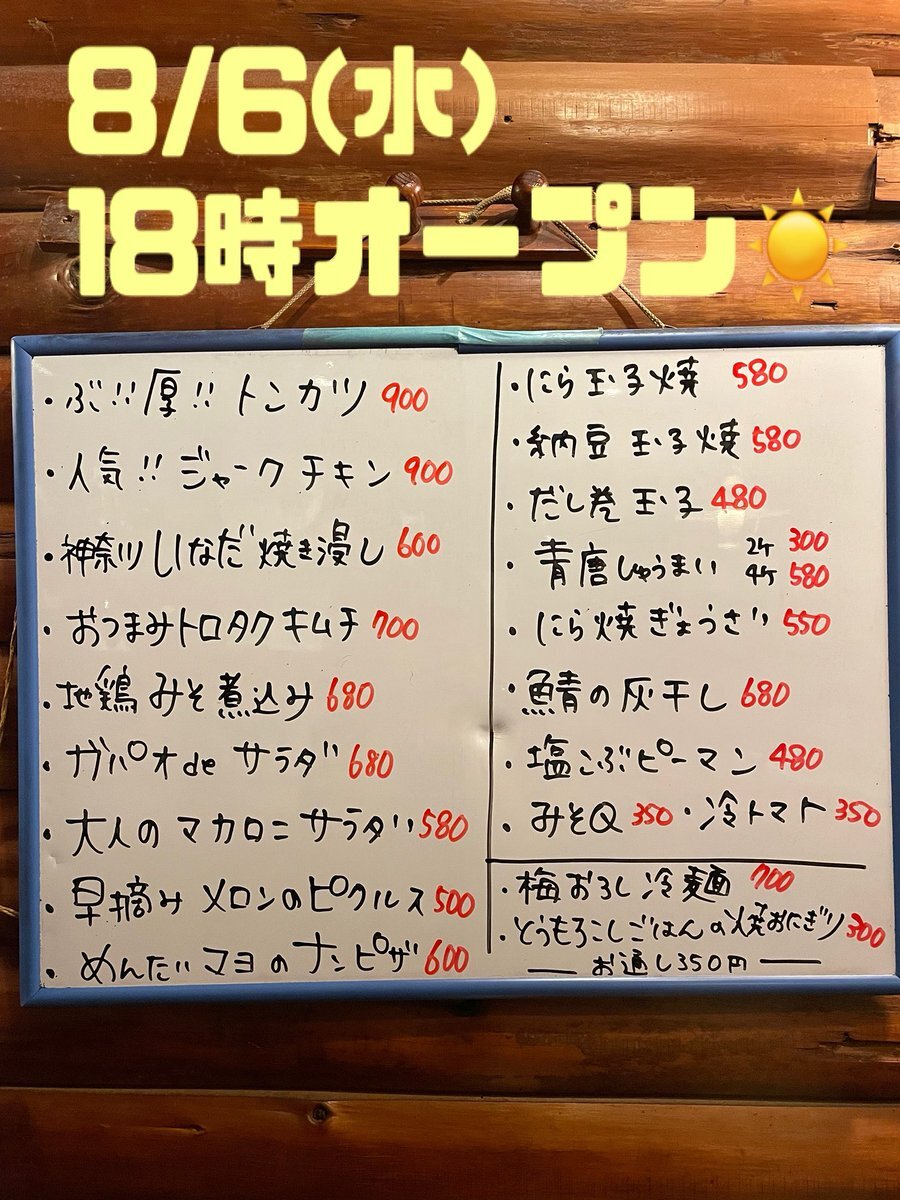 8/6(水)
18時オープン
・ぶ!!厚!! トンカツ 900
・人気!! ジャークチキン 900
・神奈川しいなだ焼き浸し 600
・おつまみトロタクキムチ 700
・地鶏みそ煮込み 680
・ガパオdeサラダ 680
・大人のマカロニサラダ 580
・早摘みメロンのピクルス 500
・めんたいマヨのナンピザ 600
・にら玉子焼 580
・納豆玉子焼 580
・だし巻玉子 480
・青唐しゅうまい 2ケ 300
4ケ 580
・にら焼ぎょうざ 550
・鯖の灰干し 680
・塩こぶピーマン 480
・みそQ 350 ・冷トマト 350
・梅おろし冷麺 700
・とうもろこしごはんの焼おにぎり 300
お通し350円